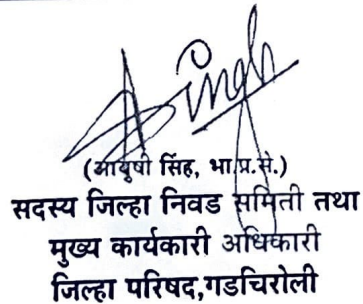 Singh
(आयुषी सिंह, भा.प्र.से.)
सदस्य जिल्हा निवड समिती तथा
मुख्य कार्यकारी अधिकारी
जिल्हा परिषद,गडचिरोली